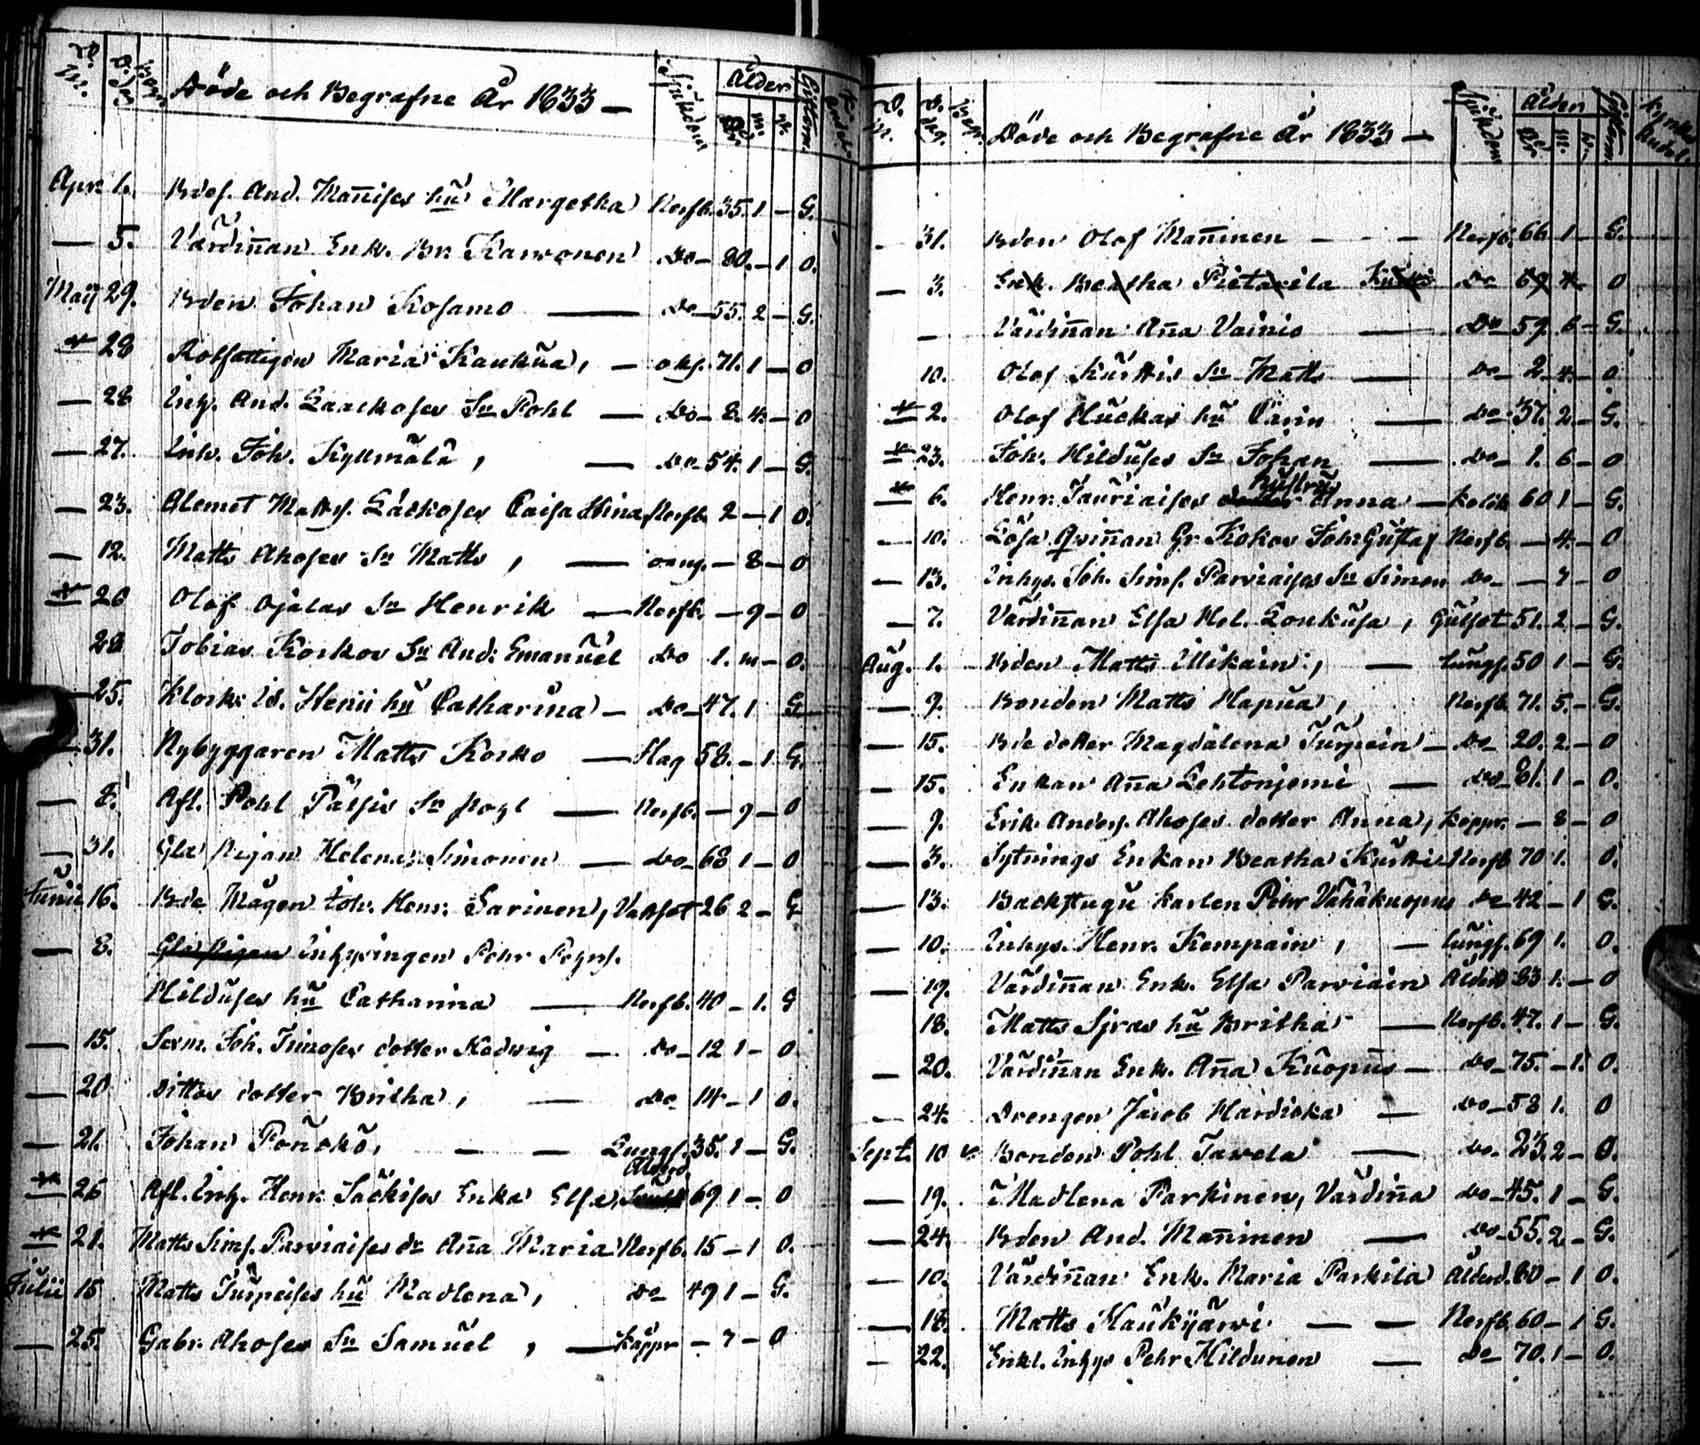 Döde och Begrafne År 1833 — Sjukdom Ålder
Apr. 1. Bdes. And. Mañises hu Margetha Nerfb. 35. 1 — G.
— 5. Värdiñan Enk. Br. Karvonen Do — 80. — 1 O.
Maij 29. Bden Johan Kosamo — Do — 55. 2 — G.
28 Rotfattigen Maria Kaukua, — 71. 1 — O
— 28 Inh. And. Laackoses Sn Pohl — Do — 8. 4. — O
— 27. Inh. Joh. Kyllmälä, — Do — 54. 1 — G.
— 23. Matts. Läckoses Caisa Stina Nerfb. 2 — 1 O.
— 12. Matts Ahoses Sn Matts, — oang. — 8 — O
20 Olof Ojalas Sn Henrik — Nerfb. — 9 — O
28 Tobias Koskos Sn And: Emanuel Do 1. — O.
— 25. Klock: Is. Stenii hu Catharina — Do — 47. 1 G
— 31. Nybyggaren Matts Kosko — Slag 58. — 1 G.
— 8. Afl. Pohl Sn — Nerfb. — 9 — O
— 31. Gla Pigan Helena Simonen — Do — 68 1 — O
Junii 16. Bde Mågen Joh. Henr. Sarinen, 26 2 — G
— 8. Inhysingen Pehr Pehrs.
Hilduses hu Catharina — Nerfb. 40 — 1. G
— 15. Joh. Timoses dotter Hedwig — Do — 12 1 — O
— 20 Dittos dotter Britha, — Do 14 — 1 O.
— 21. Johan — — Lungs. 35. 1 — G.
26 Afl. Inh. Henr. Säckises Enka Elsa, Ålderd. 69 1 — O
21. Matts Sims. Parviaises dr Aña Maria Nerfb. 15 — 1 O.
Julii 15 Matts Turpeises hu Madlena, Do 49 1 — G.
— 25. Gabr. Ahoses Sn Samuel, — Koppr — 7 — O
Döde och Begrafne År 1833 — Sjukdom Ålder
— 31. Bden Olof Mañinen — — Nerfb. 66 1 — G.
— 3. Enk. Beatha Pietarila Do 69 4. O
— Värdiñan Aña Vainio — Do — 59 6 — G.
10. Olof Kurttis Sn Matts — Do — 2. 4. — O
2. Olof Huckas hu Carin — Do — 37. 2 — G.
23. Joh. Hilduses Sn Johan — Do — 1. 6 — O
6. Henr. Tauriaises hustru Anna — Kolik 60 1 — G.
— 10. Lösa Qviñan Gr. Kokos Joh: Gustaf Nerfb. — 4. — O
— 13. Inhys. Joh. Sims. Parviaises Sn Simon Do — — 7 — O
— 7. Värdiñan Elsa Hel. Loukusa, Gulsot 51. 2 — G.
Aug. 1. Bden Matts Mikain, — Lungs. 50 1 — G.
— 9. Bonden Matts Hapua, Nerfb. 71. 5. — G.
— 15. Bde dotter Magdalena Turpein — Do 20. 2. — O
— 15. Enkan Aña Lehtoniemi — Do — 81. 1 — O.
— 9. Erik Anders. Ahoses dotter Anna, Koppr. — 8 — O
— 3. Sytnings Enkan Beatha Kurtti Nerfb 70 1. O.
— 13. Backstugu Karlen Pehr Vähäkuopus Do 42 — 1 G.
— 10. Inhys. Henr. Kempain, — Lungs. 69 1. O.
— 19. Värdiñan Enk. Elsa Parviain Ålderd. 83 1. — O
— 18. Matts Sjras hu Britha — Nerfb. 47. 1 — G.
— 20. Värdiñan Enk. Aña Kuopus — Do — 75. — 1. O.
— 24. Drengen Jacob Hardioka — Do — 58 1. O
Sept. 10 Bonden Pohl Tawela — Do. 23. 2 — O.
— 19. Madlena Parkinen, Värdiña Do — 45. 1 — G.
— 24. Bden And. Mañinen — Do — 55. 2 — G.
— 10. Värdiñan Enk. Maria Parkila Ålderd. 80 — 1 O.
— 18. Matts Haukijärwi — — Nerfb. 60 — 1 G.
— 22. Enkl. Inhys Pehr Hildunen — Do — 70. 1 — O.